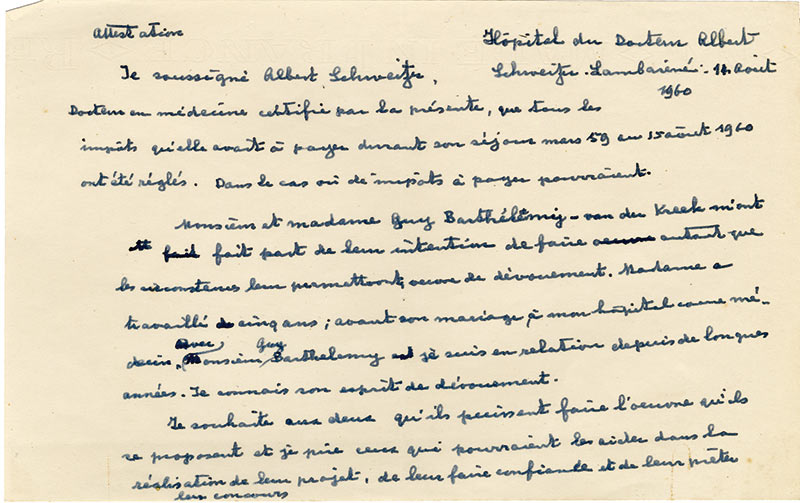 Attestation
Hôpital du Docteur Albert
Schweitzer. Lambaréné. 14 Août
1960
Je soussigné Albert Schweitzer,
Docteur en médecine certifie par la présente, que tous les
impôts qu'elle avait à payer durant son séjour mars 59 au 15 août 1960
ont été réglés. Dans le cas où de impôts à payer pourraient.
Monsieur et madame Guy Barthélémy - van der Kreek m'ont
fait part de leur intention de faire autant que
les circonstances leur permettront, oeuvre de dévouement. Madame a
travaillé cinq ans, avant son mariage, à mon hôpital comme mé-
decin. Avec Monsieur Guy Barthélemy je suis en relation depuis de longues
années. Je connais son esprit de dévouement.
Je souhaite aux deux qu'ils puissent faire l'oeuvre qu'ils
se proposent et je prie ceux qui pourraient les aider dans la
réalisation de leur projet, de leur faire confiance et de leur prêter
leur concours